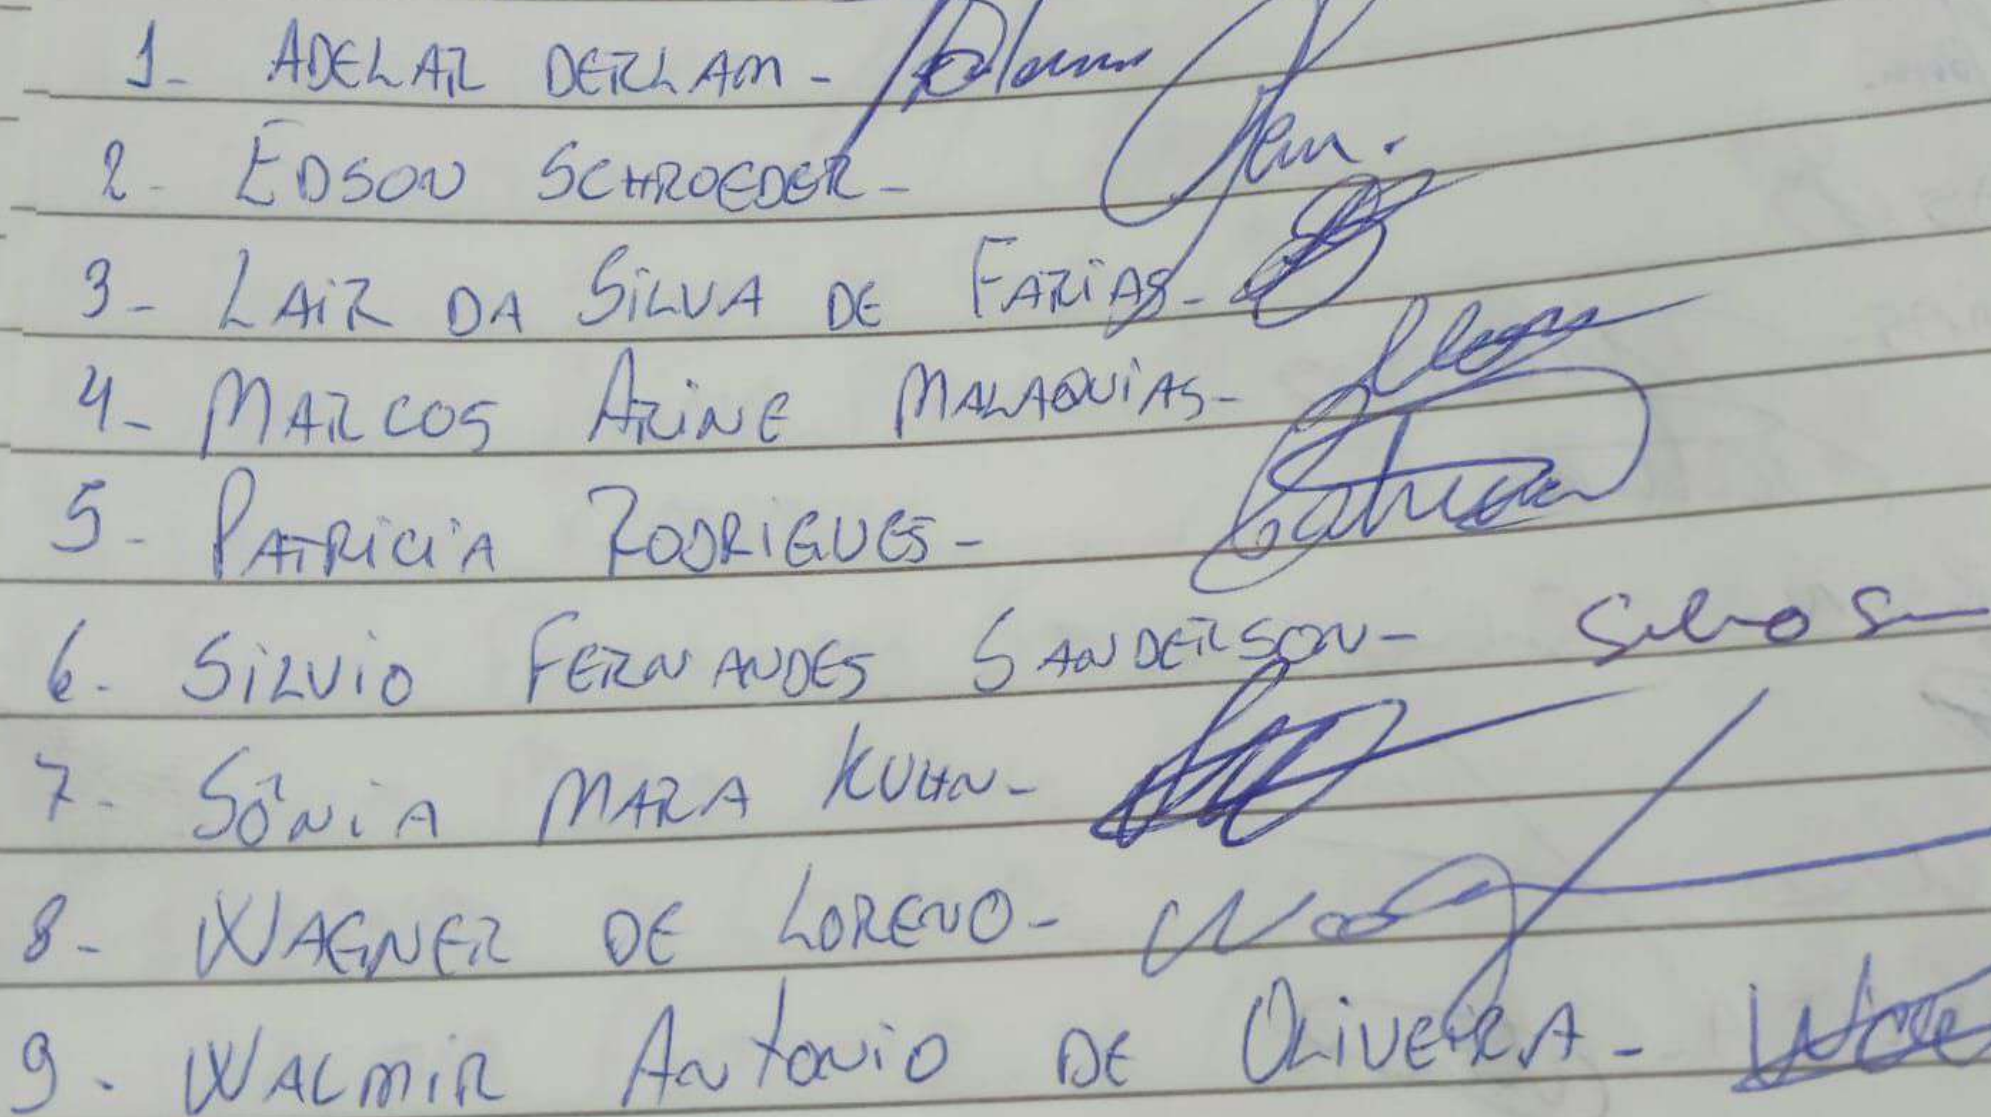 1- ADELAR DERLAM -
2- EDSON SCHROEDER -
3- LAIR DA SILVA DE FARIAS -
4- MARCOS ARINE MALAQUIAS -
5- PATRICIA RODRIGUES -
6- SILVIO FERNANDES SANDERSON - Silvio S
7- SÔNIA MARA KUHN -
8- WAGNER DE LORENO -
9- WALMIR ANTONIO DE OLIVEIRA -